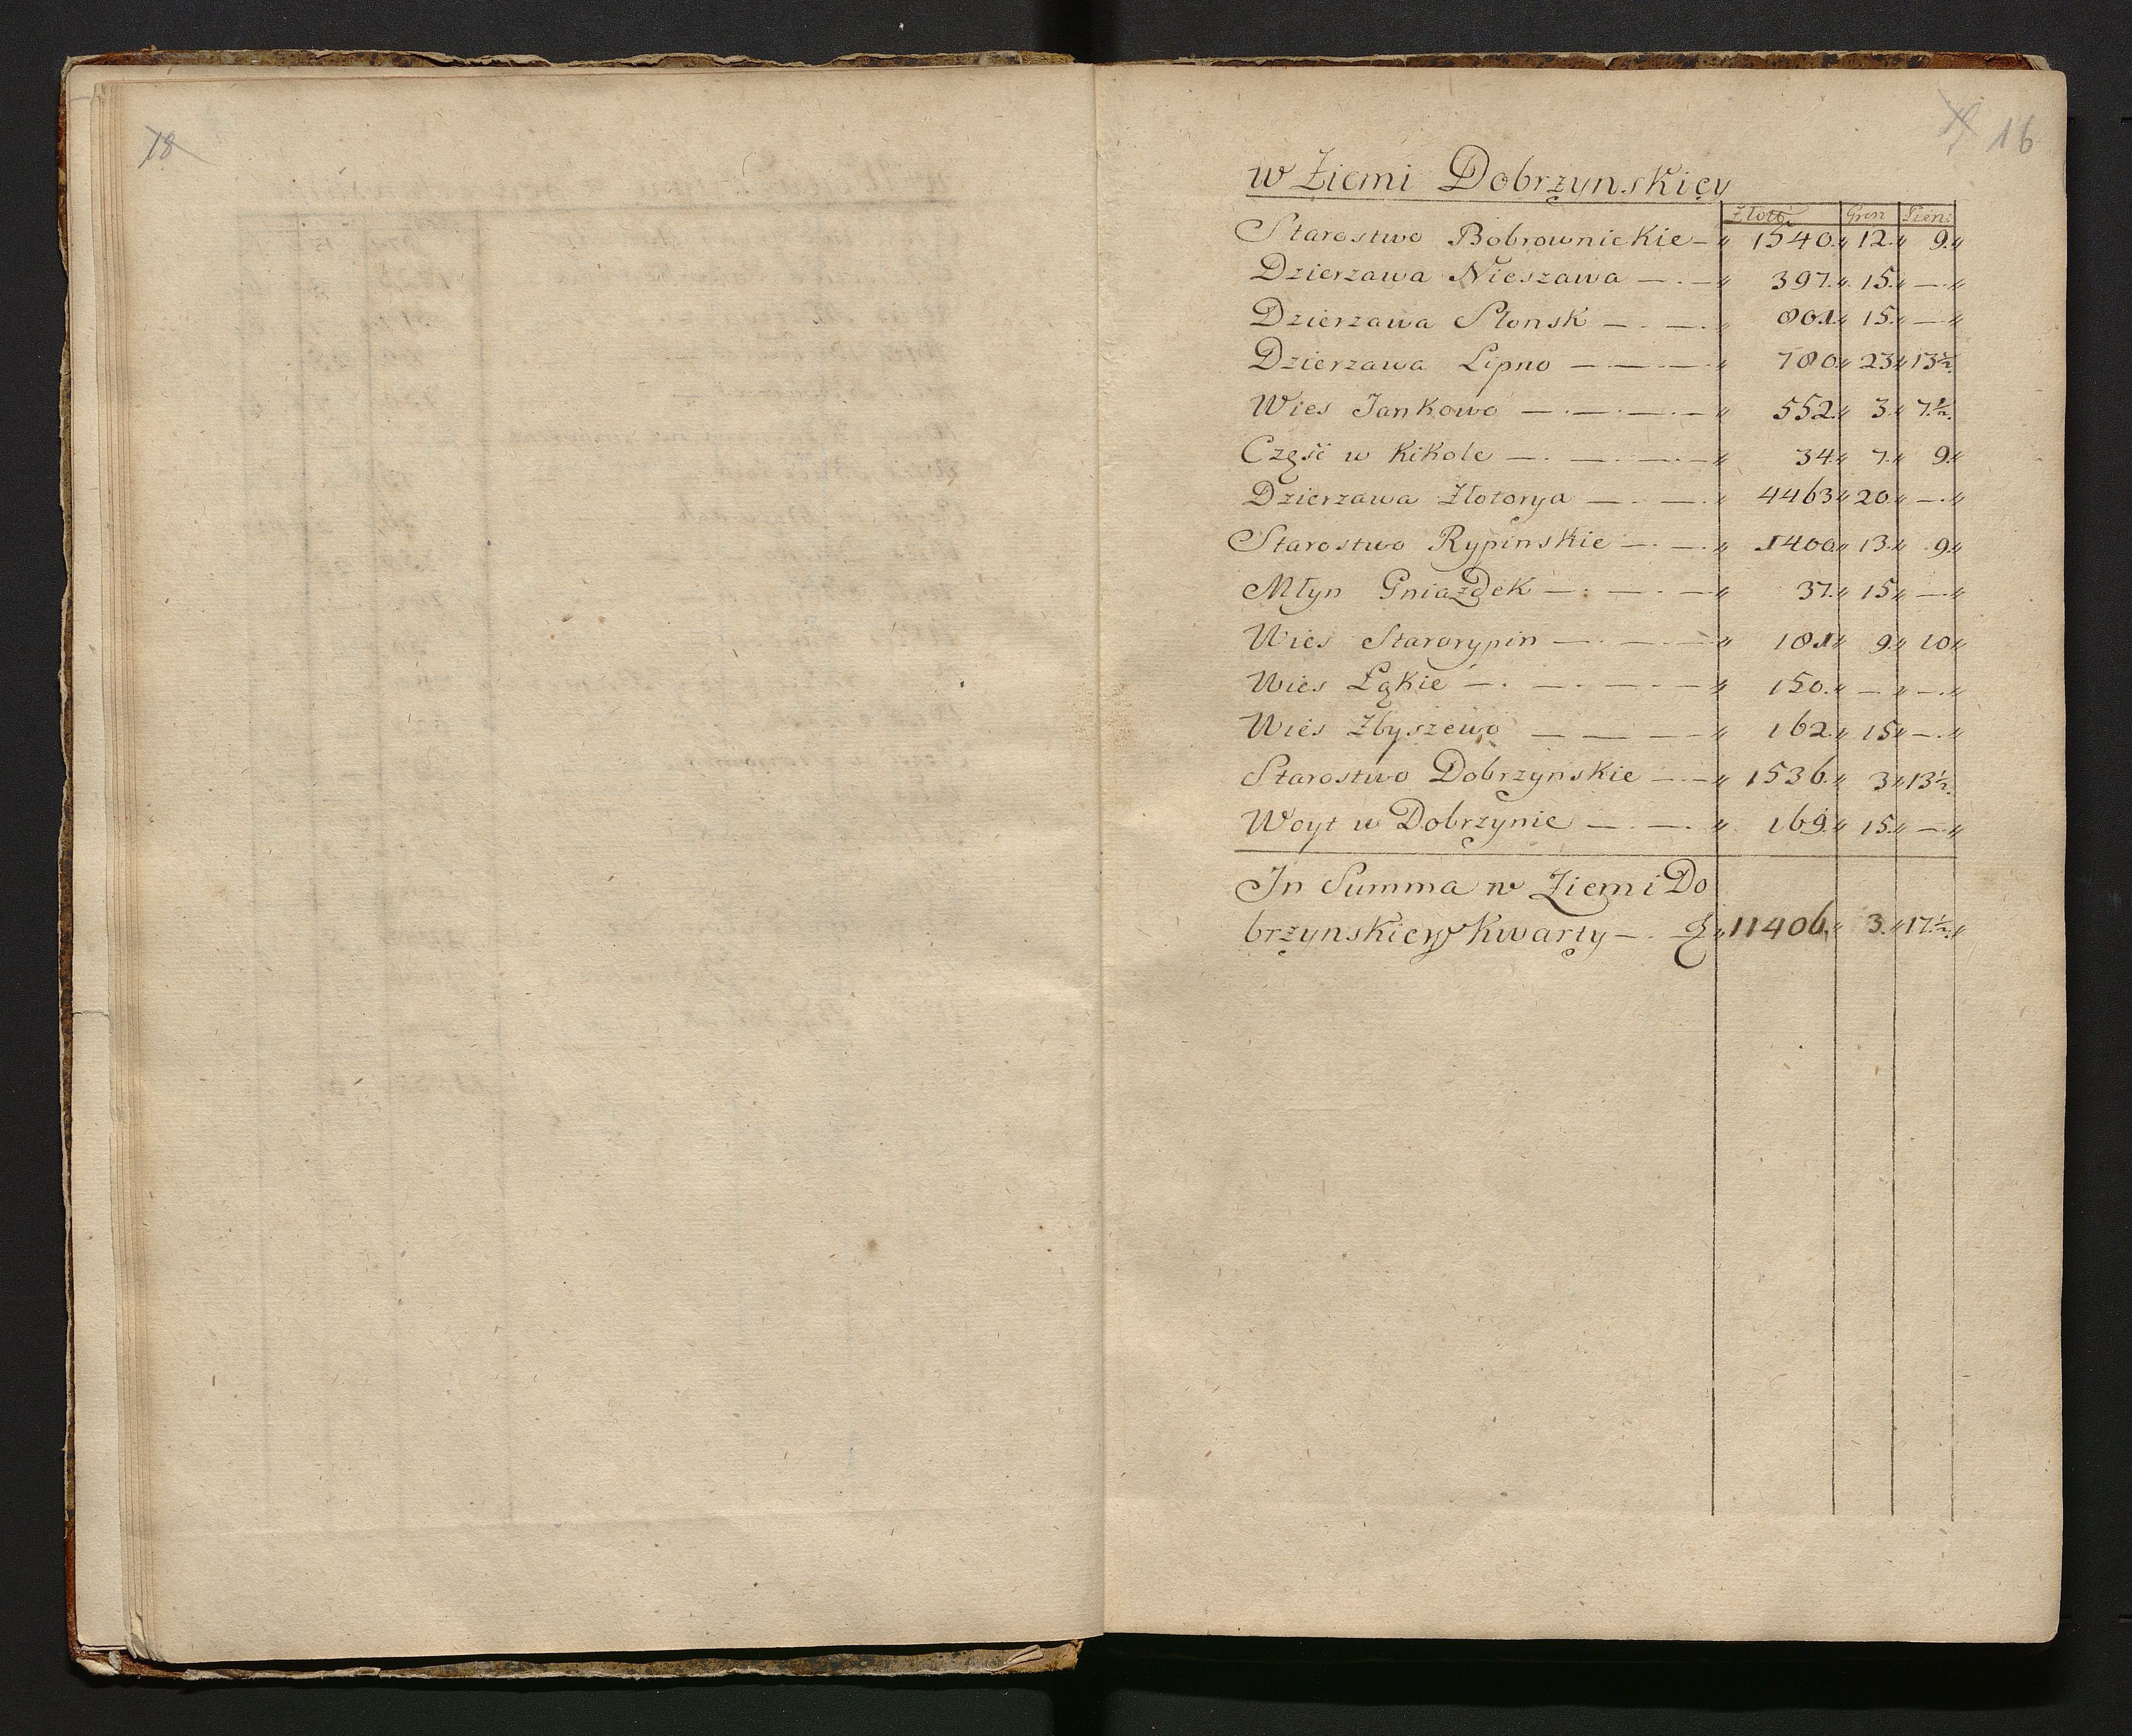 78
16
w Ziemi Dobrzynskiey
Złote Grosz Pieni
Starostwo Bobrownickie — „ 1540.„ 12.„ 9.„
Dzierzawa Nieszawa — . — „ 397.„ 15.„ — . „
Dzierzawa Slonsk — . — . „ 801.„ 15.„ — „
Dzierzawa Lipno — — . — „ 780.„ 23„ 13½.
Wies Jankowo — . — . — . — „ 552.„ 3.„ 7½.
Część w Kikole — . — . — . — „ 34.„ 7.„ 9.„
Dzierzawa Złotorya — . — . „ 4463„ 20.„ — . „
Starostwo Rypinskie — . — . „ 1400.„ 13.„ 9„
Młyn Gniazdek — . — . — „ 37.„ 15„ — . „
Wies Starorypin — . — . — „ 181„ 9.„ 10„
Wies Łąkie — . — . — . — „ 150.„ — . „ — . „
Wies Zbyszewo — — — „ 162.„ 15„ — . „
Starostwo Dobrzynskie — . — „ 1536.„ 3„ 13½.
Woyt w Dobrzynie — . — . „ 169.„ 15.„ — . „
In Summa w Ziemi Do
brzynskiey Kwarty — . „ 11406.„ 3.„ 17½.„